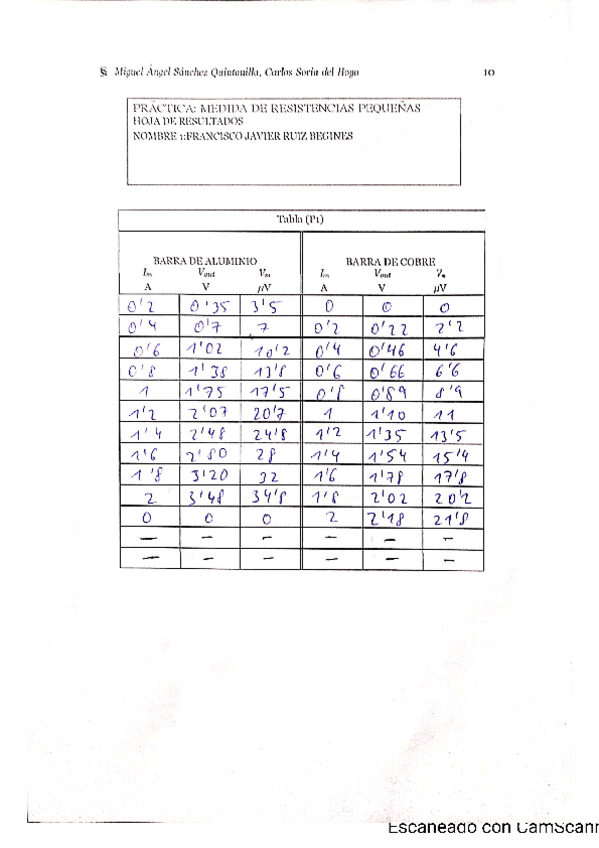 § Miguel Ángel Sánchez Quintanilla, Carlos Soria del Hoyo 10
PRÁCTICA: MEDIDA DE RESISTENCIAS PEQUEÑAS
HOJA DE RESULTADOS
NOMBRE 1:FRANCISCO JAVIER RUIZ BEGINES
Tabla (P1)
BARRA DE ALUMINIO BARRA DE COBRE
Im Vout Vm Im Vout Vm
A V µV A V µV
0'2 0'35 3'5 0 0 0
0'4 0'7 7 0'2 0'22 2'2
0'6 1'02 10'2 0'4 0'46 4'6
0'8 1'38 13'8 0'6 0'66 6'6
1 1'75 17'5 0'8 0'89 8'9
1'2 2'07 20'7 1 1'10 11
1'4 2'48 24'8 1'2 1'35 13'5
1'6 2'80 28 1'4 1'54 15'4
1'8 3'20 32 1'6 1'78 17'8
2 3'48 34'8 1'8 2'02 20'2
0 0 0 2 2'18 21'8
— — — — — —
— — — — — —
Escaneado con CamScann